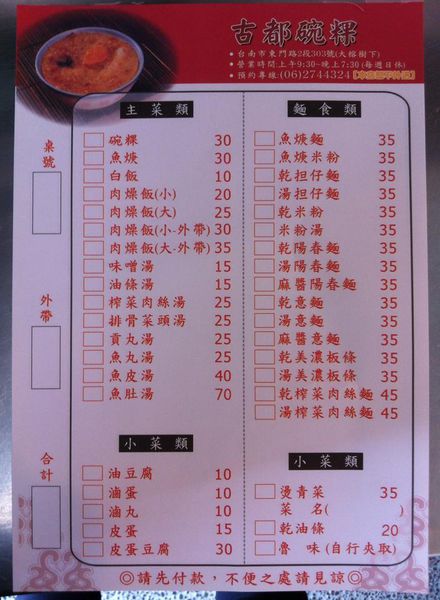 古都碗粿
•台南市東門路2段303號(大榕樹下)
•營業時間:上午9:30-晚上7:30(每週日休)
•預約專線:(06)2744324
桌號
外帶
合計
主菜類
碗粿 30
魚焿 30
白飯 10
肉燥飯(小) 20
肉燥飯(大) 25
肉燥飯(小-外帶) 30
肉燥飯(大-外帶) 35
味噌湯 15
油條湯 15
榨菜肉絲湯 25
排骨菜頭湯 25
貢丸湯 25
魚丸湯 25
魚皮湯 40
魚肚湯 70
小菜類
油豆腐 10
滷蛋 10
滷丸 10
皮蛋 15
皮蛋豆腐 30
麵食類
魚焿麵 35
魚焿米粉 35
乾担仔麵 35
湯担仔麵 35
乾米粉 35
米粉湯 35
乾陽春麵 35
湯陽春麵 35
麻醬陽春麵 35
乾意麵 35
湯意麵 35
麻醬意麵 35
乾美濃板條 35
湯美濃板條 35
乾榨菜肉絲麵 45
湯榨菜肉絲麵 45
小菜類
燙青菜 35
菜名( )
乾油條 20
魯 味(自行夾取)
◎請先付款，不便之處請見諒◎